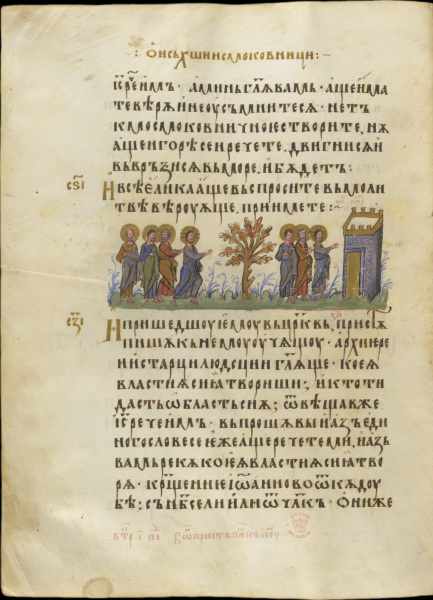 : ѻ исъхшии смоковници :~
І҃с рече имъ · аминь гл҃ѫ вамъ · аще има
те вѣрѫ и не оусъмнитесѧ · не тъ
кмо смоковничное створите, нѫ
аще и горѣ сеи речете. двигнисѧ и
въврьзисѧ въ море, и бѫдетъ :
сѕ҃і
И всѣ елика аще въспросите въ моли
твѣ вѣроуѫще, приимете :~
сз҃і
И пришедшоу емоу въ цр҃квь, пристѫ
пишѫ къ немоу оучѧщоу · архиере
е и старци людсции гл҃ѧще · коеѫ
властиѫ сиа твориши; и кто ти
дастъ ѡбласть сиѫ; Ѿвѣщав же
І҃с рече имъ · въпрошѫ вы и азъ еди
ного словесе еже аще речете ми, и азъ
вамъ рекѫ коеѫ властиѫ сиа тво
рѧ · кр҃щение іѡанново ѿкѫдоу
бѣ; съ нб҃се ли или ѿ чл҃къ · они же